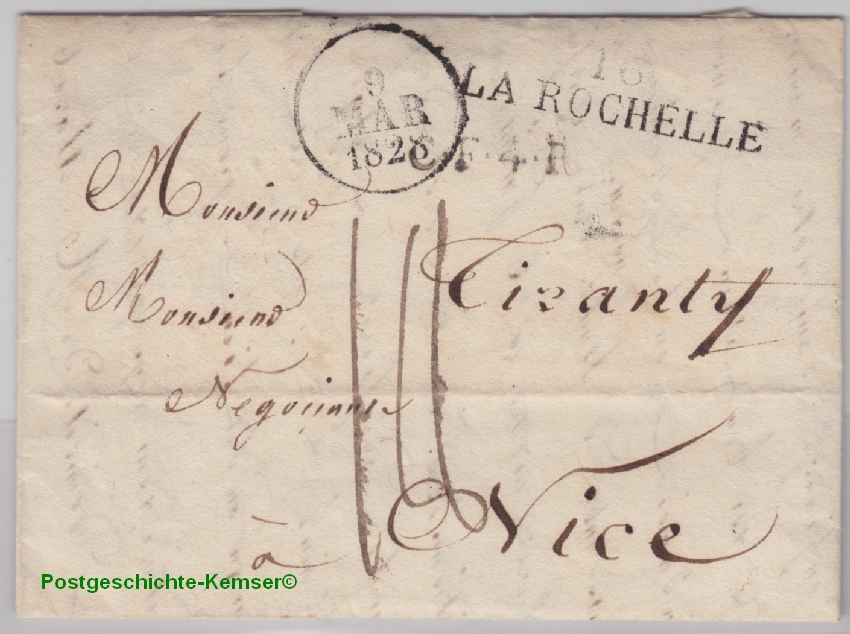 9
MAR
1828
16
LA ROCHELLE
C.F.4.R
Monsieur
Monsieur Tiranty
Négociant
à Nice
Postgeschichte-Kemser©